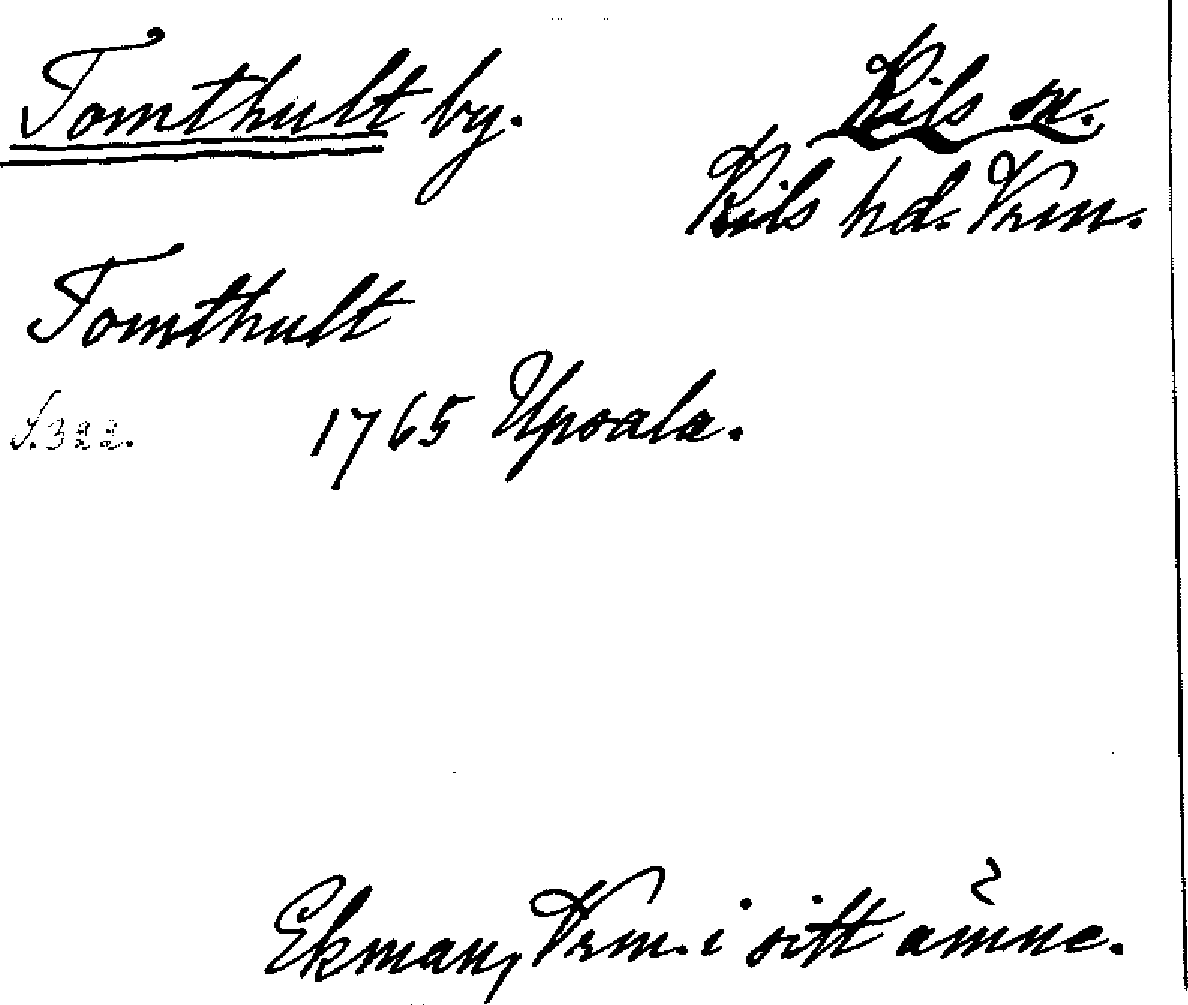 Tomthult by. Kils sn.
Kils hd. Vrm.
Tomthult
S. 322. 1765 Upsala.
Ekman, Vrm. i sitt ämne.